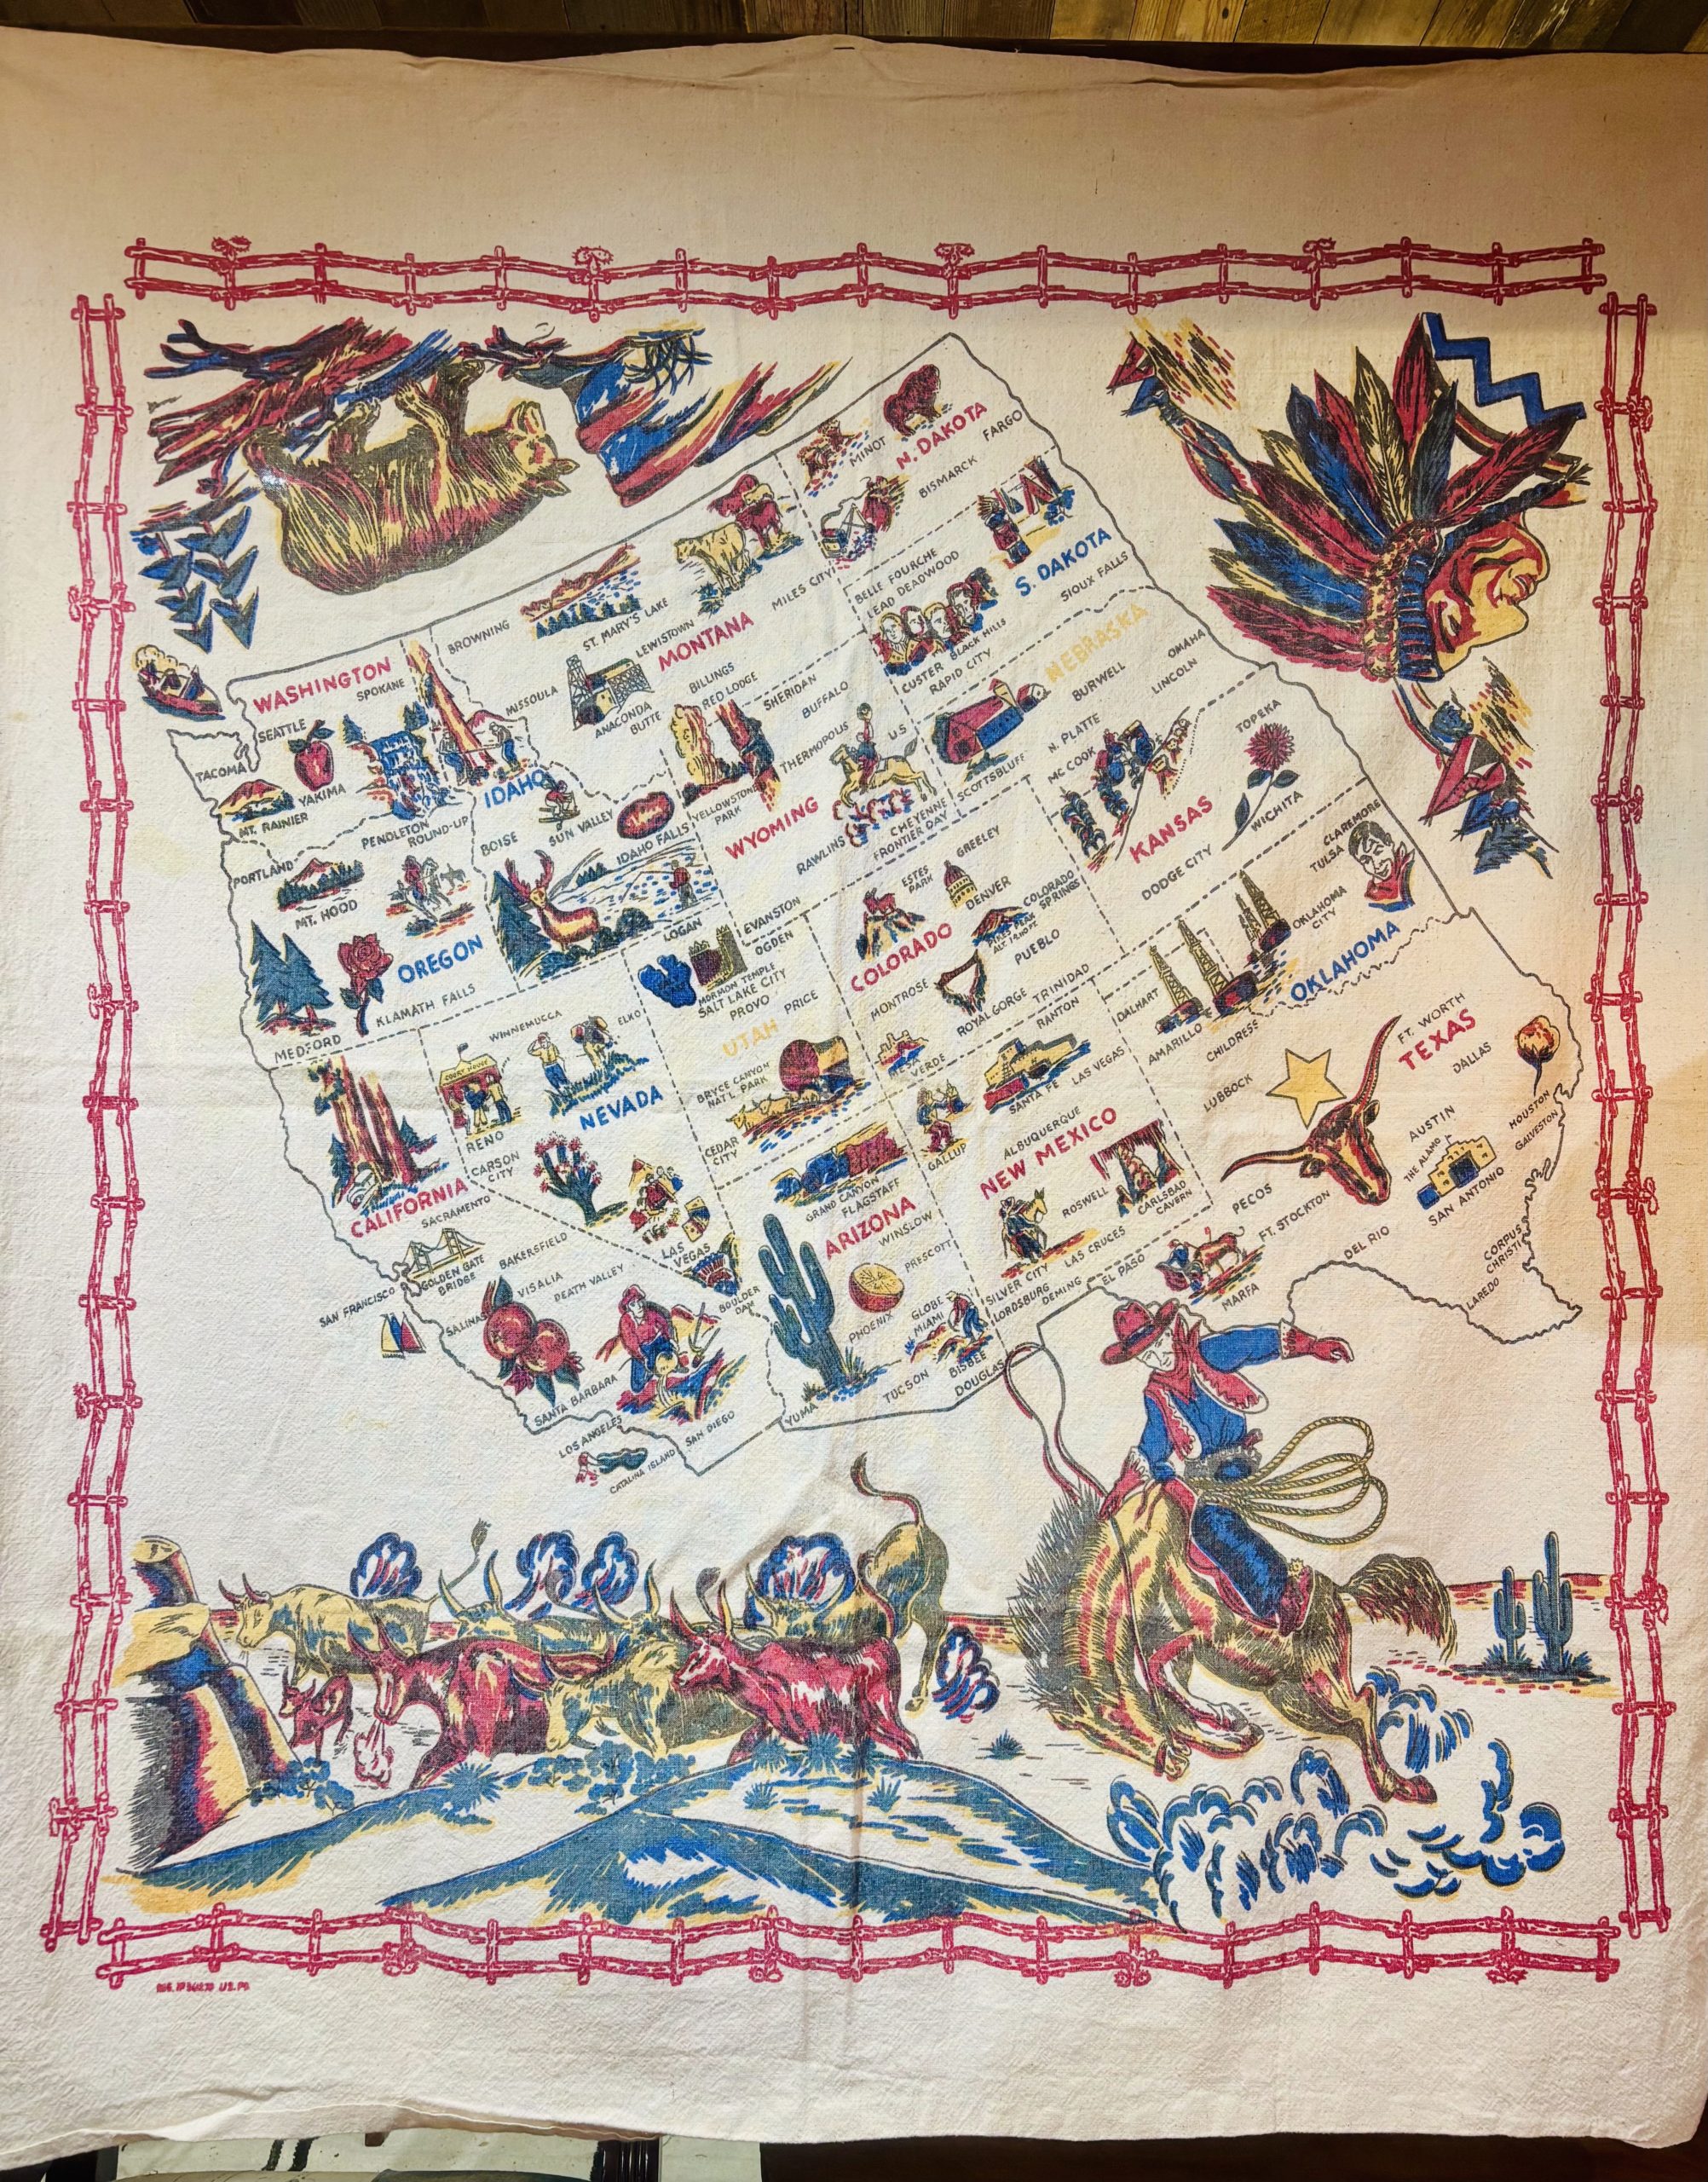 WASHINGTON
SPOKANE
SEATTLE
TACOMA
YAKIMA
MT. RAINIER
BROWNING
ST. MARY'S LAKE
LEWISTOWN
MONTANA
MILES CITY
MISSOULA
ANACONDA
BUTTE
BILLINGS
RED LODGE
MINOT
N. DAKOTA
FARGO
BISMARCK
BELLE FOURCHE
LEAD DEADWOOD
S. DAKOTA
SIOUX FALLS
CUSTER
BLACK HILLS
RAPID CITY
IDAHO
BOISE
SUN VALLEY
IDAHO FALLS
YELLOWSTONE
PARK
SHERIDAN
BUFFALO
THERMOPOLUS
U.S
WYOMING
RAWLINS
CHEYENNE
FRONTIER DAY
EVANSTON
NEBRASKA
OMAHA
LINCOLN
BURWELL
N. PLATTE
MC COOK
SCOTTSBLUFF
PORTLAND
PENDLETON
ROUND-UP
MT. HOOD
OREGON
KLAMATH FALLS
MEDFORD
LOGAN
OGDEN
MORMON TEMPLE
SALT LAKE CITY
PROVO
PRICE
UTAH
BRYCE CANYON
NAT'L PARK
CEDAR
CITY
GREELEY
ESTES
PARK
DENVER
COLORADO
SPRINGS
COLORADO
PUEBLO
MONTROSE
ROYAL GORGE
TRINIDAD
MESA
VERDE
KANSAS
TOPEKA
WICHITA
DODGE CITY
CLAREMORE
TULSA
OKLAHOMA
CITY
OKLAHOMA
WINNEMUCCA
ELKO
COURT HOUSE
NEVADA
RENO
CARSON
CITY
LAS
VEGAS
BOULDER
DAM
CALIFORNIA
SACRAMENTO
GOLDEN GATE
BRIDGE
SAN FRANCISCO
BAKERSFIELD
VISALIA
DEATH VALLEY
SALINAS
SANTA BARBARA
LOS ANGELES
SAN DIEGO
CATALINA ISLAND
GRAND CANYON
FLAGSTAFF
ARIZONA
WINSLOW
PRESCOTT
PHOENIX
GLOBE
MIAMI
BISBEE
DOUGLAS
TUCSON
YUMA
RANTON
SANTA FE
LAS VEGAS
GALLUP
ALBUQUERQUE
NEW MEXICO
ROSWELL
CARLSBAD
CAVERN
LAS CRUCES
SILVER CITY
LORDSBURG
DEMING
DALHART
AMARILLO
CHILDRESS
LUBBOCK
FT. WORTH
TEXAS
DALLAS
AUSTIN
HOUSTON
GALVESTON
THE ALAMO
SAN ANTONIO
PECOS
FT. STOCKTON
EL PASO
MARFA
DEL RIO
CORPUS
CHRISTI
LAREDO